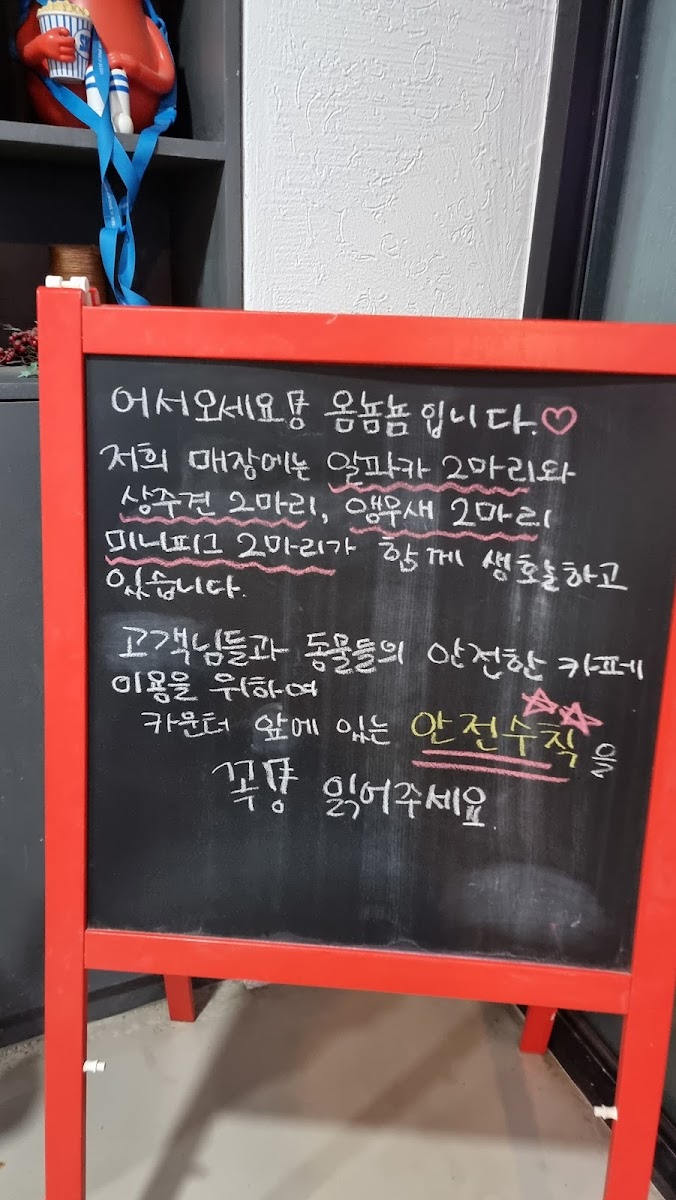 어서오세요오 옴뇸뇸입니다.♡
저희 매장에는 알파카 2마리와
상주견 2마리, 앵무새 2마리
미니피그 2마리가 함께 생활하고
있습니다.
고객님들과 동물들의 안전한 카페
이용을 위하여
카운터 앞에 있는 안전수칙을
꼬옥 읽어주세요